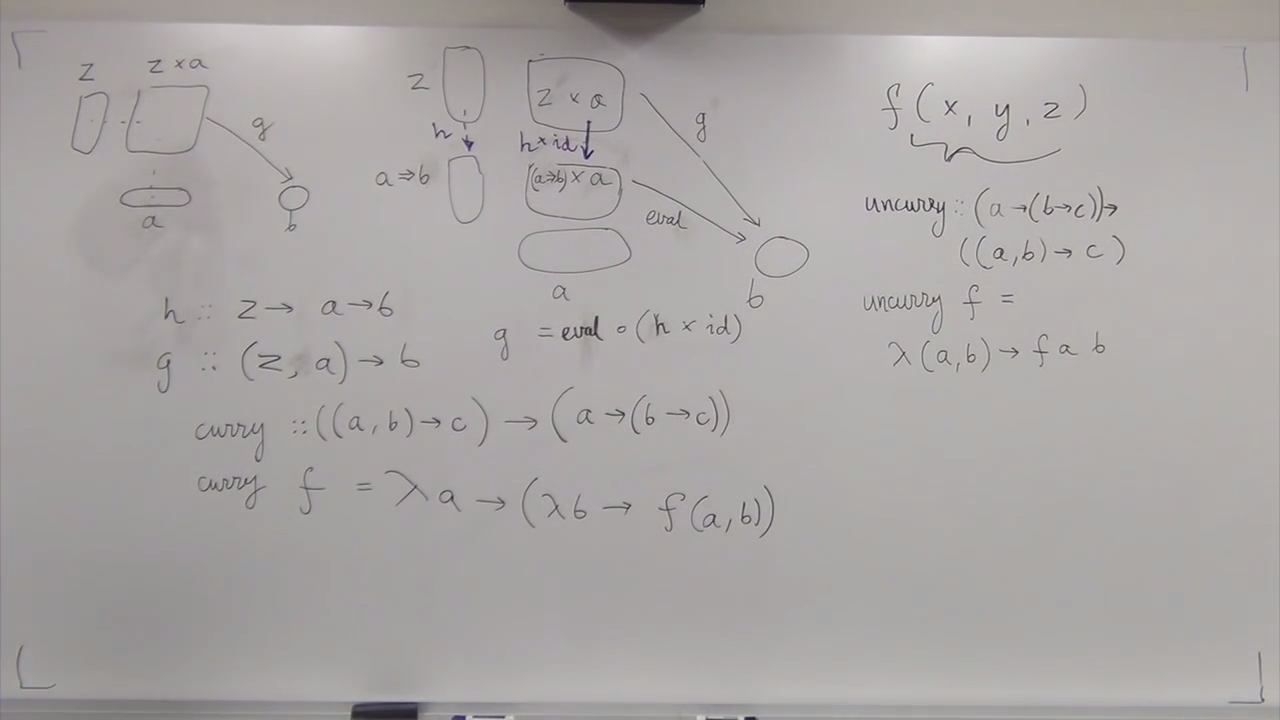 z
z × a
g
a
b
z
z × a
g
h
h × id
a ⇒ b
(a⇒b) × a
eval
a
b
h :: z → a → b
g :: (z, a) → b
g = eval ∘ (h × id)
curry :: ((a, b) → c) → (a → (b → c))
curry f = λa → (λb → f(a, b))
f(x, y, z)
uncurry :: (a → (b → c)) →
((a, b) → c)
uncurry f =
λ(a, b) → f a b